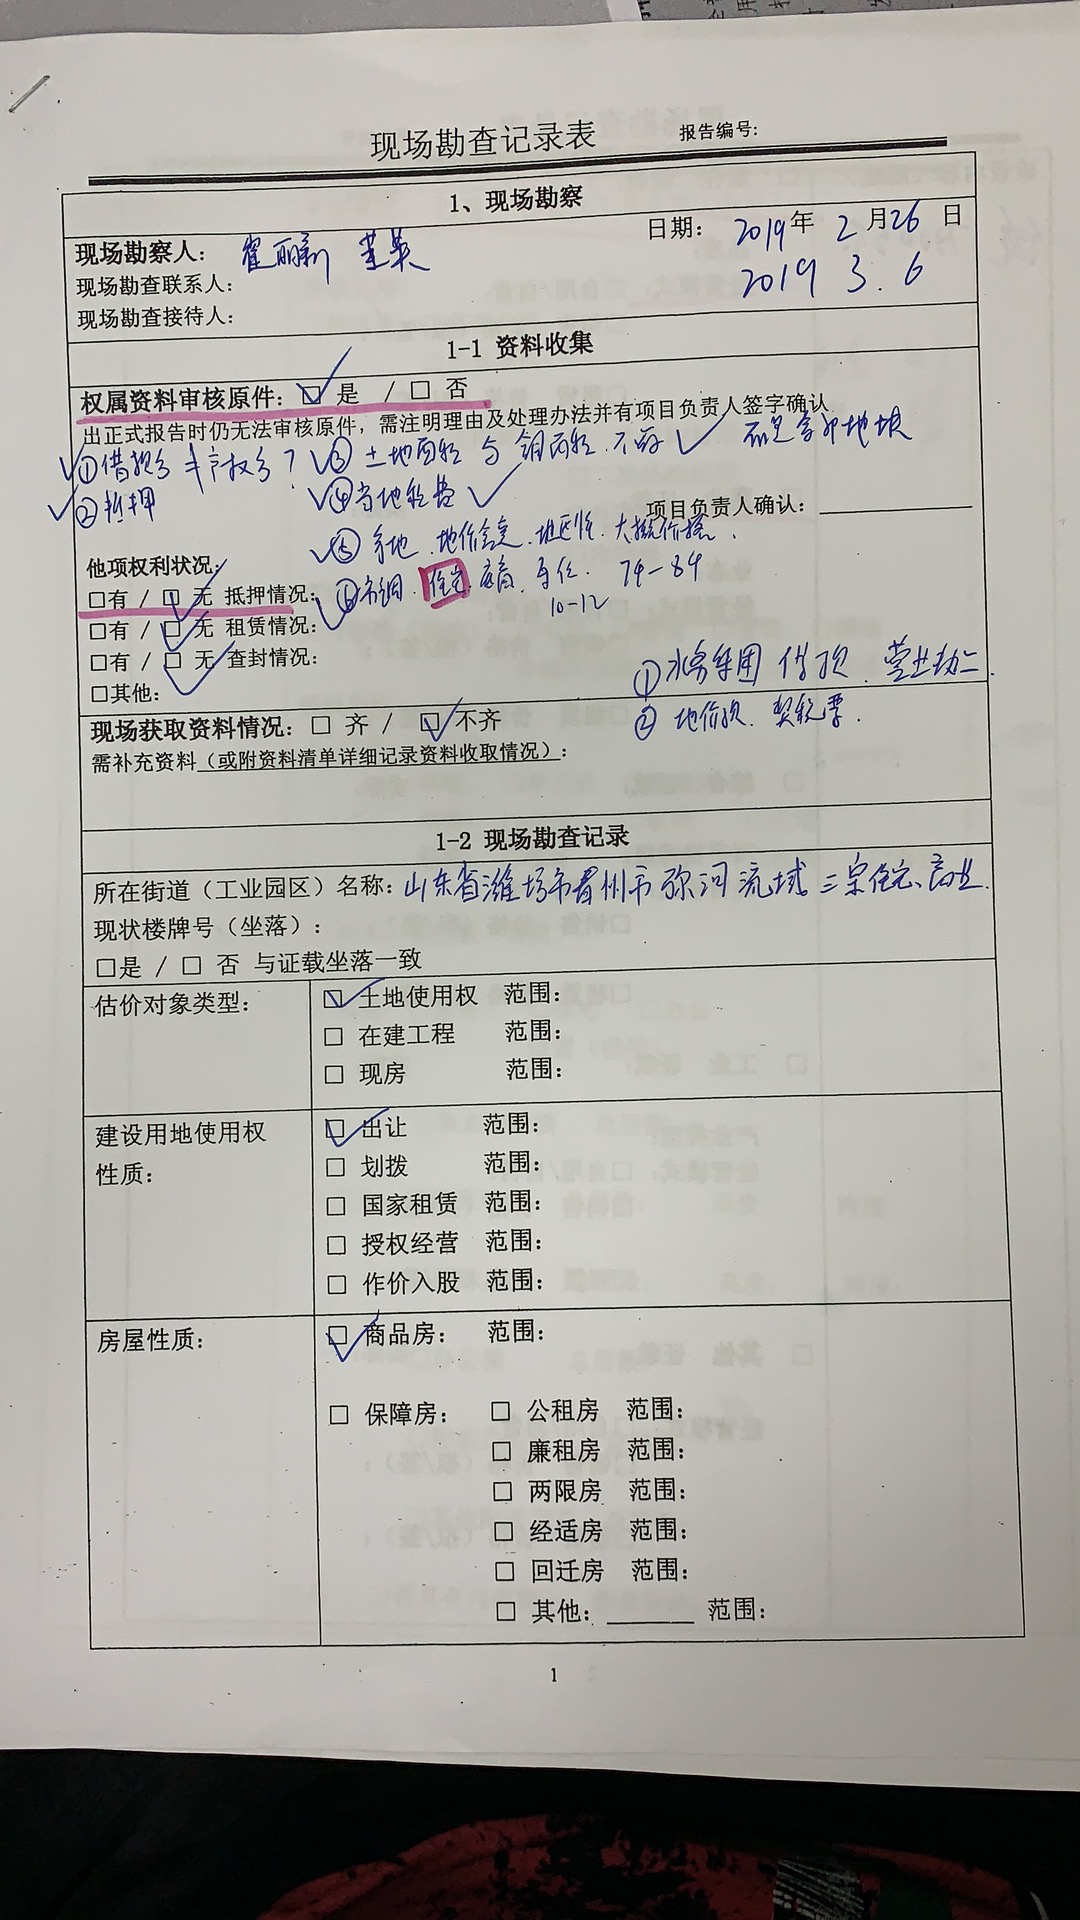 现场勘查记录表 报告编号:
1、现场勘察
现场勘察人: 日期: 2019年 2月26日
现场勘查联系人: 2019 3.6
现场勘查接待人:
1-1 资料收集
权属资料审核原件: ☑ 是 / □ 否
出正式报告时仍无法审核原件，需注明理由及处理办法并有项目负责人签字确认
① ③ 土地面积 与
②抵押 ④当地税费
项目负责人确认:
⑤ 地价 大概价格
他项权利状况:
□有 / ☑ 无 抵押情况: ⑥市调. 住宅 74-84
10-12
□有 / ☑ 无 租赁情况:
□有 / ☑ 无 查封情况:
① 集团
□其他:
② 地价款. 契税票.
现场获取资料情况: □ 齐 / ☑ 不齐
需补充资料(或附资料清单详细记录资料收取情况):
1-2 现场勘查记录
所在街道（工业园区）名称: 山东省潍坊市青州市弥河流域二宗住宅、商业.
现状楼牌号（坐落）:
□是 / □ 否 与证载坐落一致
估价对象类型: ☑ 土地使用权 范围:
□ 在建工程 范围:
□ 现房 范围:
建设用地使用权 ☑ 出让 范围:
性质: □ 划拨 范围:
□ 国家租赁 范围:
□ 授权经营 范围:
□ 作价入股 范围:
房屋性质: ☑ 商品房: 范围:
□ 保障房: □ 公租房 范围:
□ 廉租房 范围:
□ 两限房 范围:
□ 经适房 范围:
□ 回迁房 范围:
□ 其他:______ 范围:
1